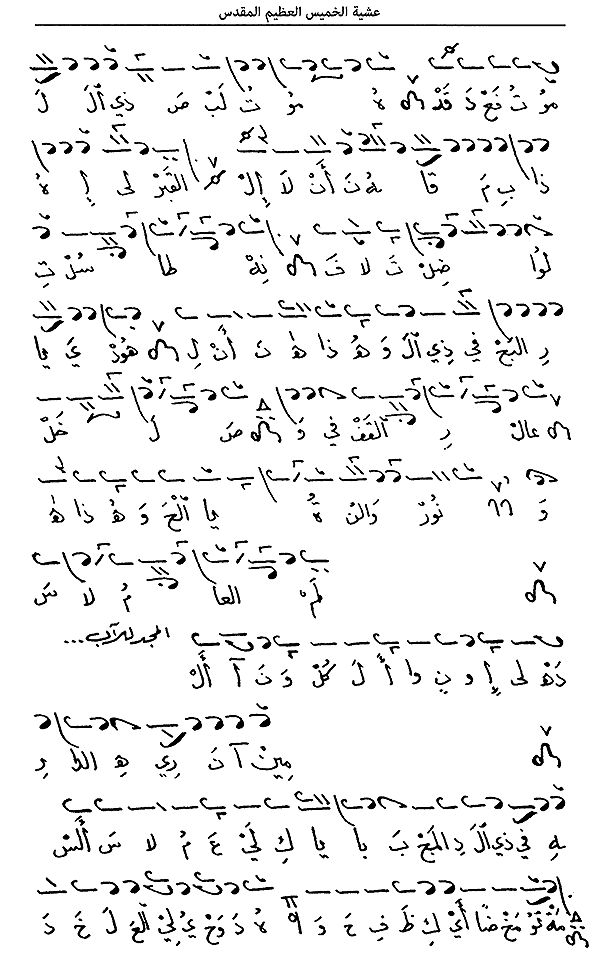 عشية الخميس العظيم المقدس
مَوْ تُ نَعْ دَ قَدْ هُ مَوْ تُ لَبْ صَ ذي اَلْ لَ
ذا بِ مَ قا هُ نَ أَنْ لَا إِلْ القَبْرْ لى إِ هُ
لُوا ضِلْ تَ لا فَ نِهْ طا سُلْ تِ
رِ البَحْ في ذي اَلْ وَ هُ ذا ها نَ أَنْ لِ هُوذْ يَ يا
عالْ رِ القَفْ في وَ صَ لَ خَلْ
وَ نُورْ وَالنْ ةُ يا اَلْحَ وَ هُ ذا ها
لَمْ العا مُ لا سَ
المجد للآب...
دَهْ لى إِ و نِ وا أَ لَ كُلْ وَ نَ آ أَلْ
مِينْ آ نَ ري هِ الدا رِ
هِ في ذي اَلْ دِ المَجْ بَ با يا كِ لَيْ عَ مُ لا سَ أَلسْ
مَهْ تَوْ مَخْ ضاً أَيْ كِ ظَ فِ حَ وَ هُ دَ وَحْ يُ لِيْ اَلْعَ لَ خَ دَ